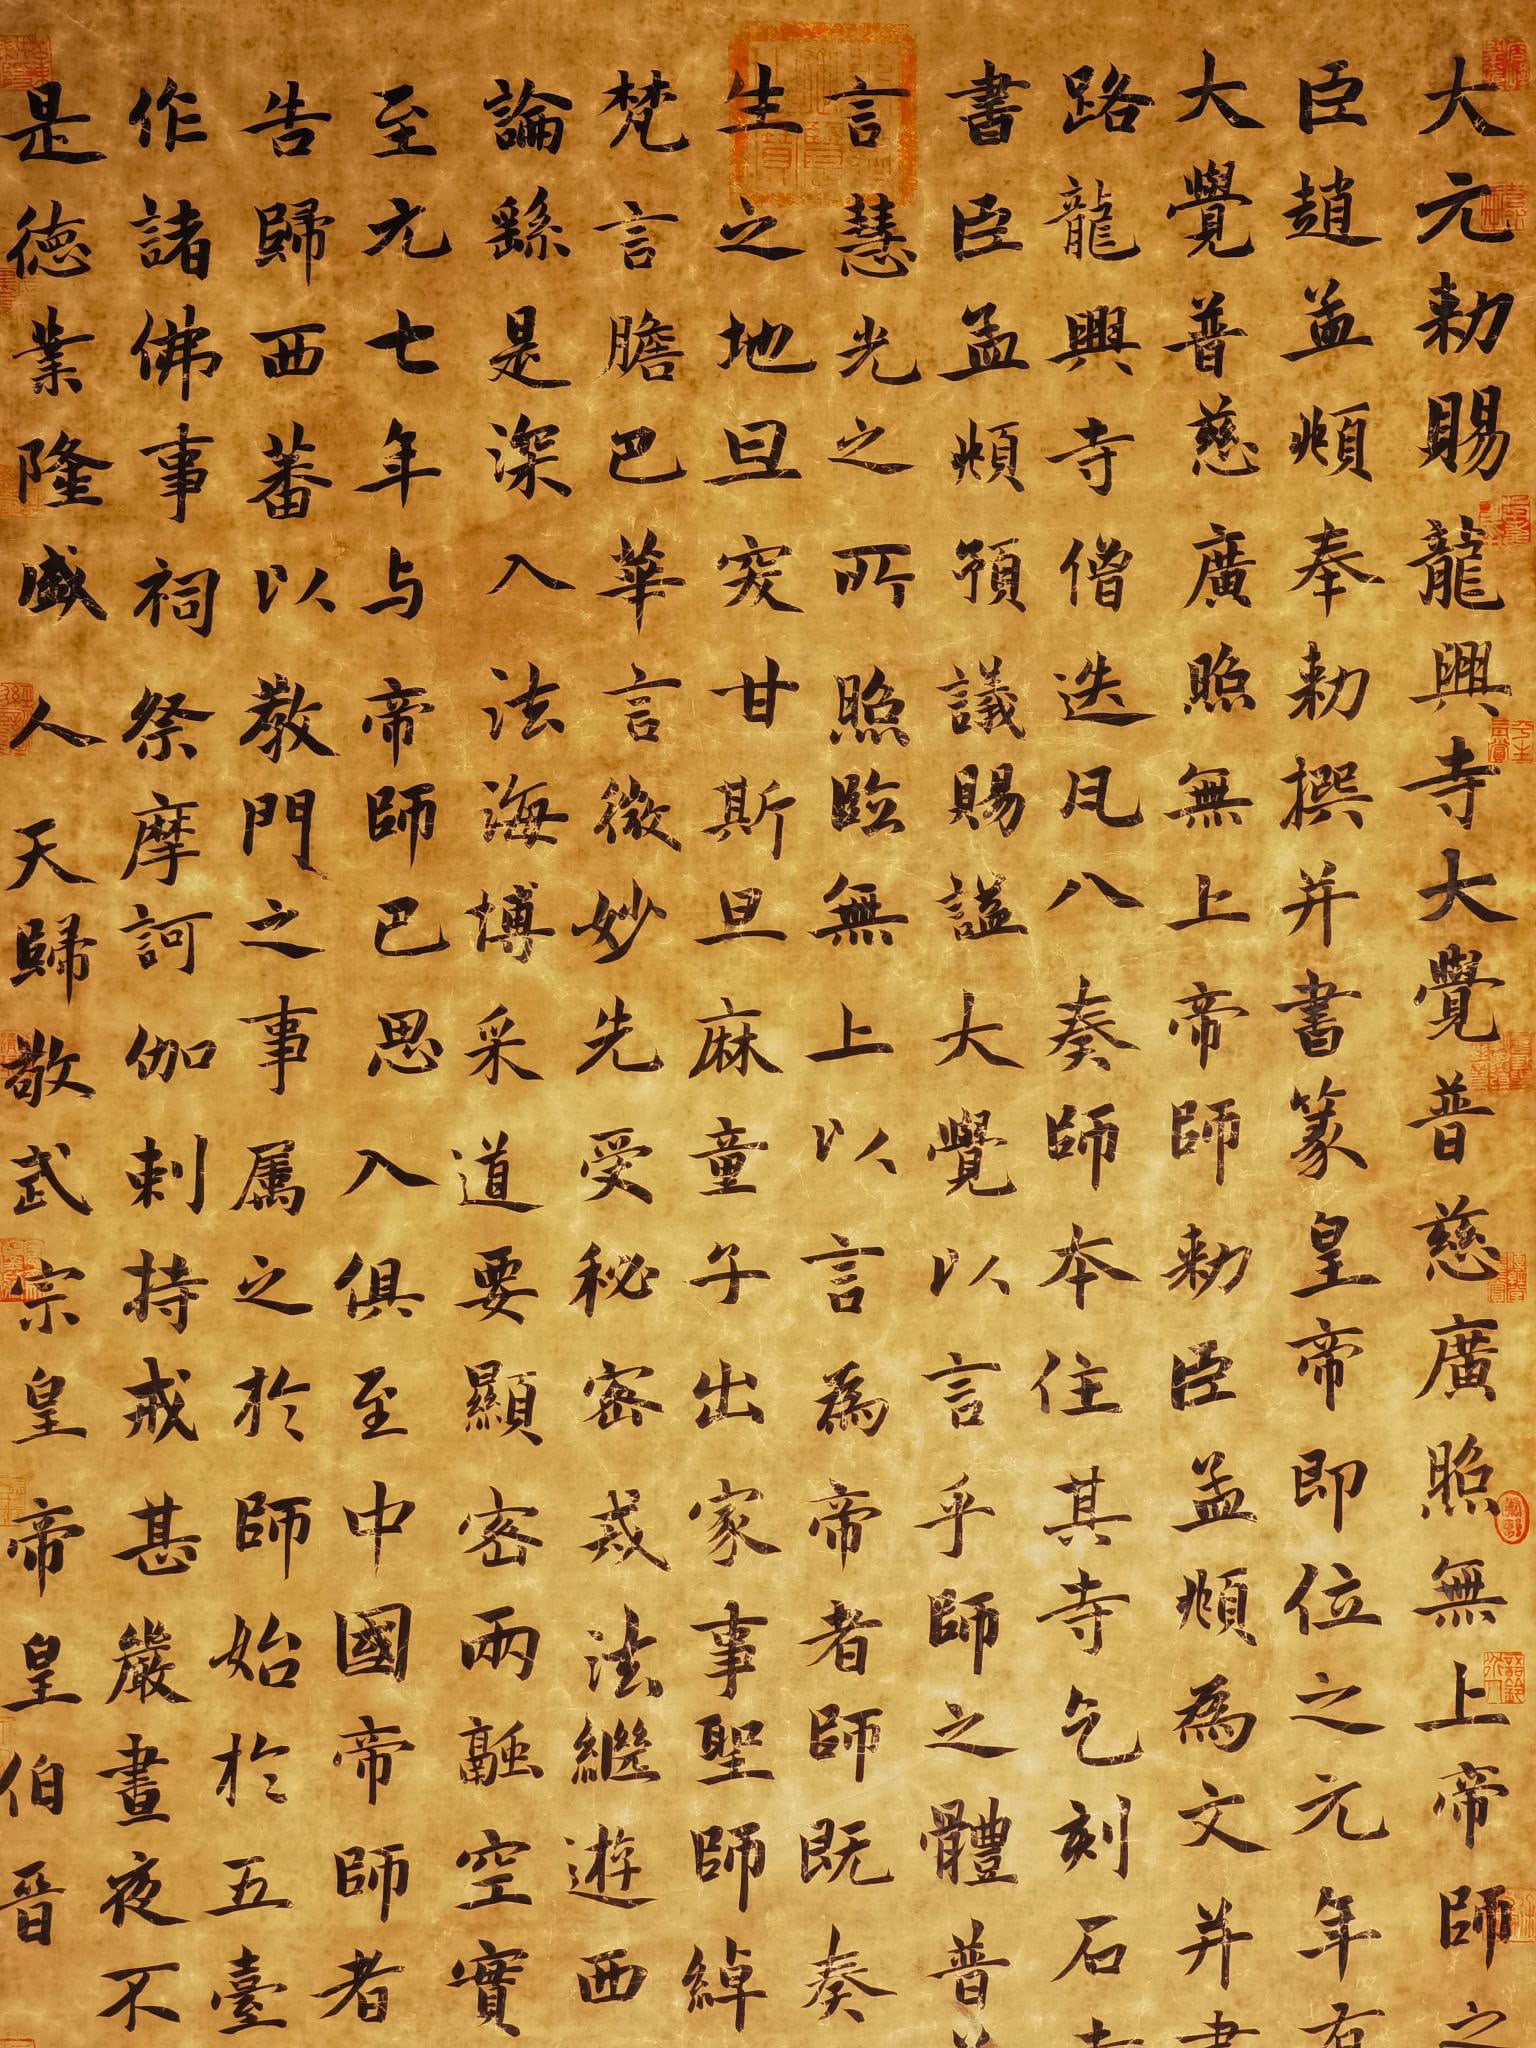 大元勅賜龍興寺大覺普慈廣照無上帝師之
臣趙孟頫奉勅撰并書篆皇帝即位之元年有
大覺普慈廣照無上帝師勅臣孟頫為文并書
路龍興寺僧迭凡八奏師本住其寺乞刻石
書臣孟頫預議賜謚大覺以言乎師之體普
言慧光之所照臨無上以言為帝者師既奏
生之地旦突甘斯旦麻童子出家事聖師綽
梵言膽巴華言微妙先受秘密戒法繼遊西
論繇是深入法海博采道要顯密兩融空實
至元七年与帝師巴思入俱至中國帝師者
告歸西蕃以教門之事属之於師始於五臺
作諸佛事祠祭摩訶伽剌持戒甚嚴晝夜不
是德業隆盛人天歸敬武宗皇帝皇伯晉